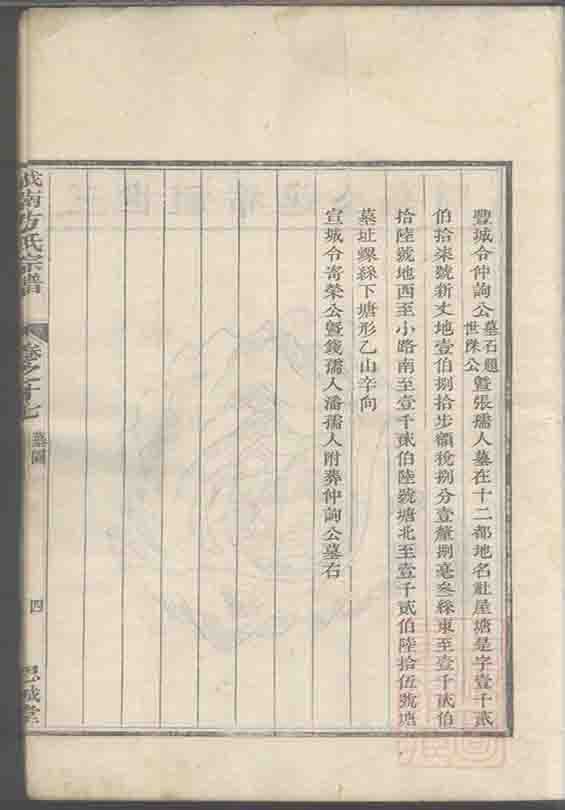 豐城令仲詢公墓石題世傑公曁張孺人墓在十二都地名社屋塘是字壹千貳
伯拾柒號新丈地壹伯捌拾步額稅捌分壹釐捌毫叁絲東至壹千貳伯
拾陸號地西至小路南至壹千貳伯陸號塘北至壹千貳伯陸拾伍號塘
墓址螺絲下塘形乙山辛向
宣城令寄榮公曁錢孺人潘孺人附葬仲詢公墓右
南方氏宗譜
卷之
墓圖
四